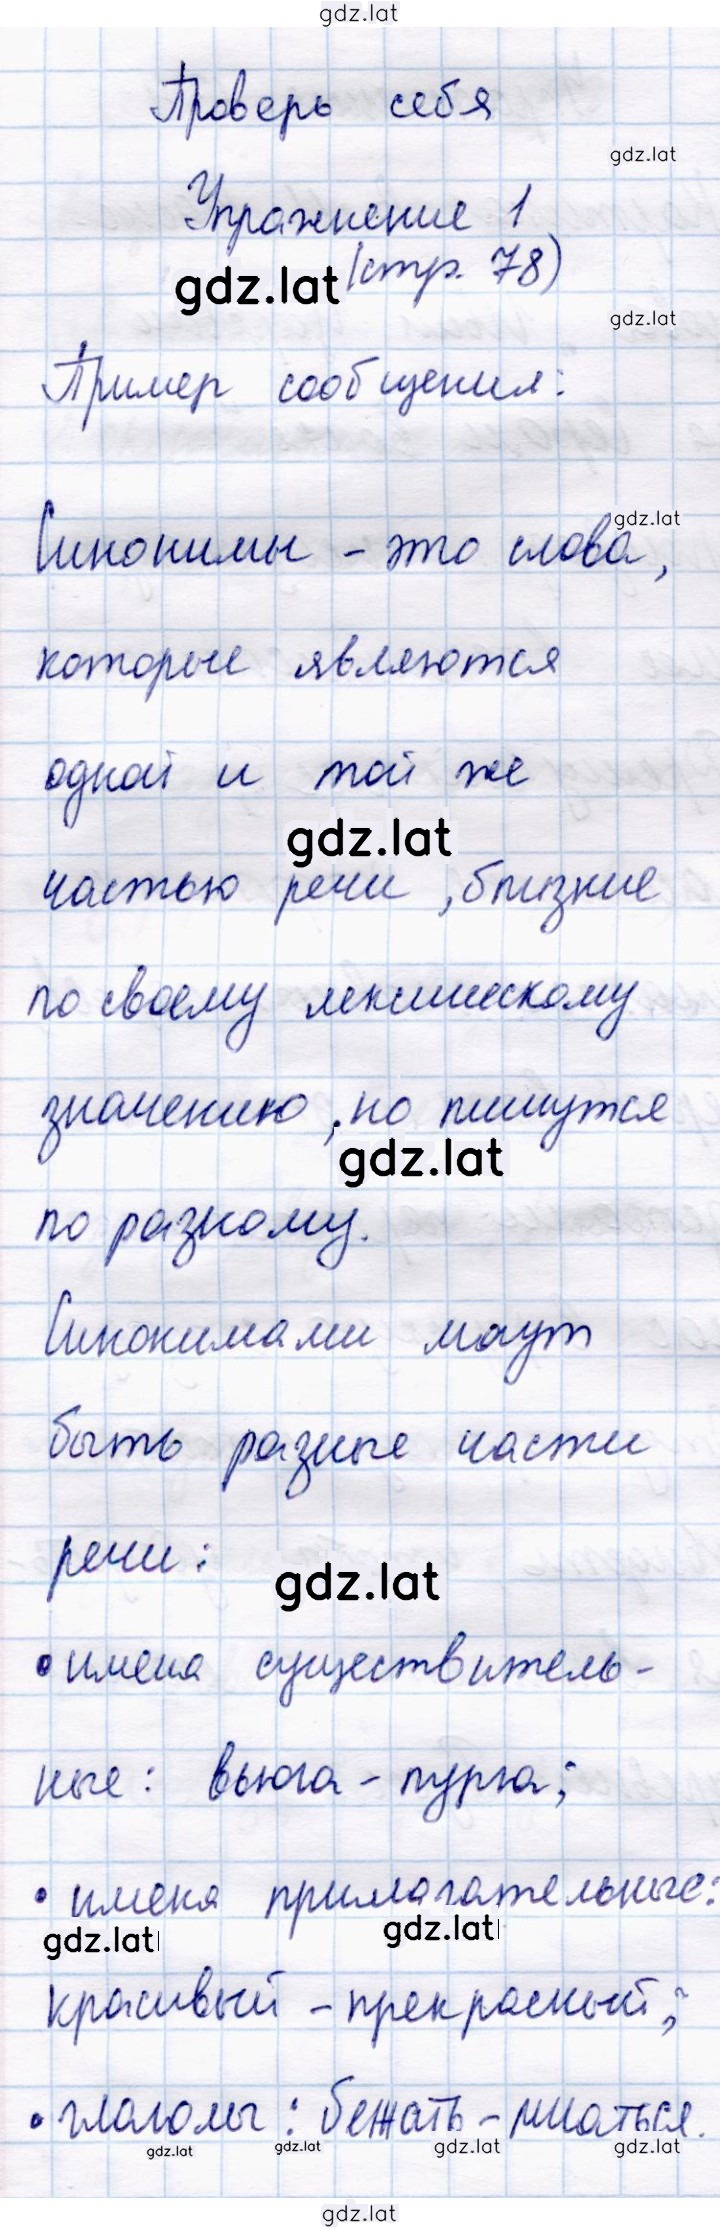 gdz.lat
Проверь себя
gdz.lat
Упражнение 1
gdz.lat (стр. 78)
gdz.lat
Пример сообщения:
gdz.lat
Синонимы - это слова,
которые являются
одной и той же
gdz.lat
частью речи, близкие
по своему лексическому
значению, но пишутся
gdz.lat
по разному.
Синонимами могут
быть разные части
речи:
gdz.lat
• имена существитель-
ные: вьюга - пурга;
• имена прилагательные:
gdz.lat gdz.lat
красивый - прекрасный;
• глаголы: бежать - мчаться.
gdz.lat gdz.lat gdz.lat gdz.lat
gdz.lat